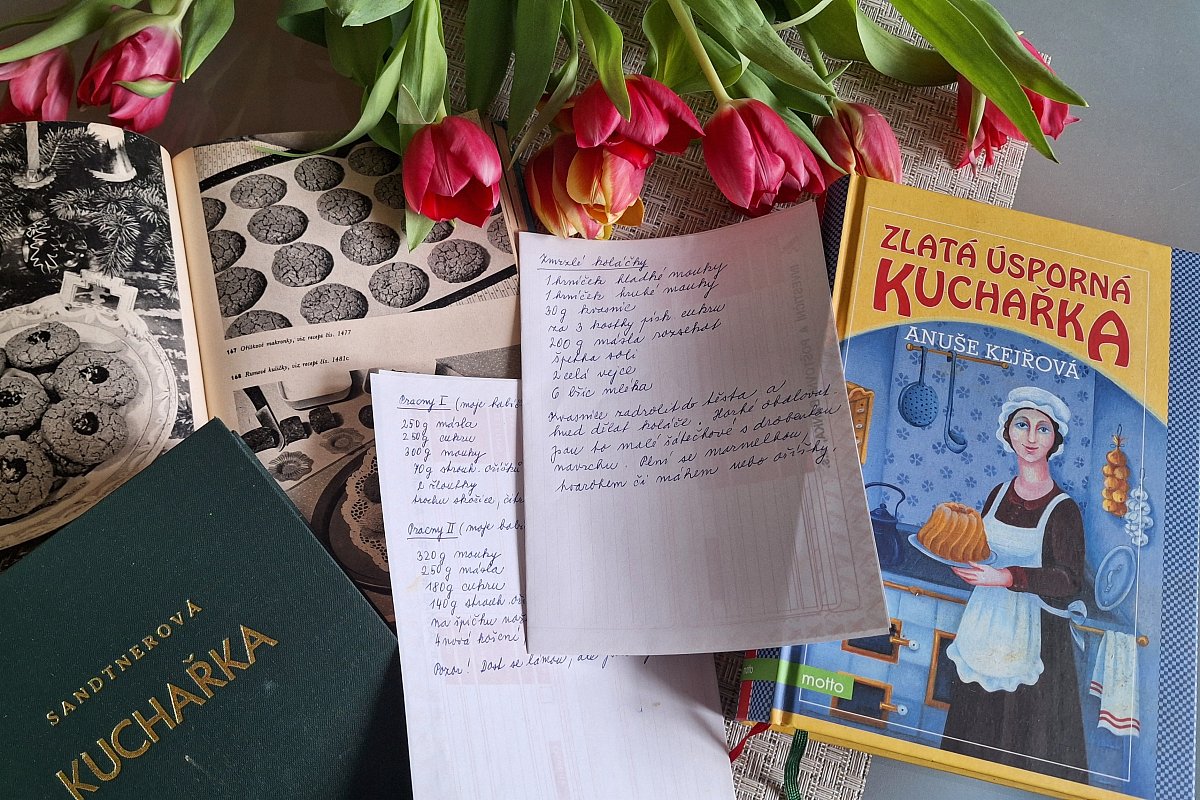 147 Oříškové makronky, viz recepe čís. 1477
148 Rumové kuličky, viz recepe čís. 1481c
Zmrzlé koláčky
1 hrníček hladké mouky
1 hrníček hrubé mouky
30 g kvasnic
za 3 kostky písk. cukru
200 g másla rozsekat
špetka soli
2 celá vejce
6 lžic mléka
Kvasnice zadrolit do těsta a
hned dělat koláče. Horké obalovat
jsou to malé šátečkové s drobenkou
navrchu. Plní se marmelkou,
tvarohem či mákem nebo oříšky.
Pracny I (moje babič
250 g másla
250 g cukru
300 g mouky
70 g strouh. oříšků
2 žloutky
trochu skořice, citr
Pracny II (moje babi
320 g mouky
250 g másla
180 g cukru
140 g strouh. oř
na špičku nož
4 nová koření
Pozor! Dost se lámou, ale
SANDTNEROVÁ
KUCHAŘKA
ZLATÁ ÚSPORNÁ
KUCHAŘKA
ANUŠE KEJŘOVÁ
motto